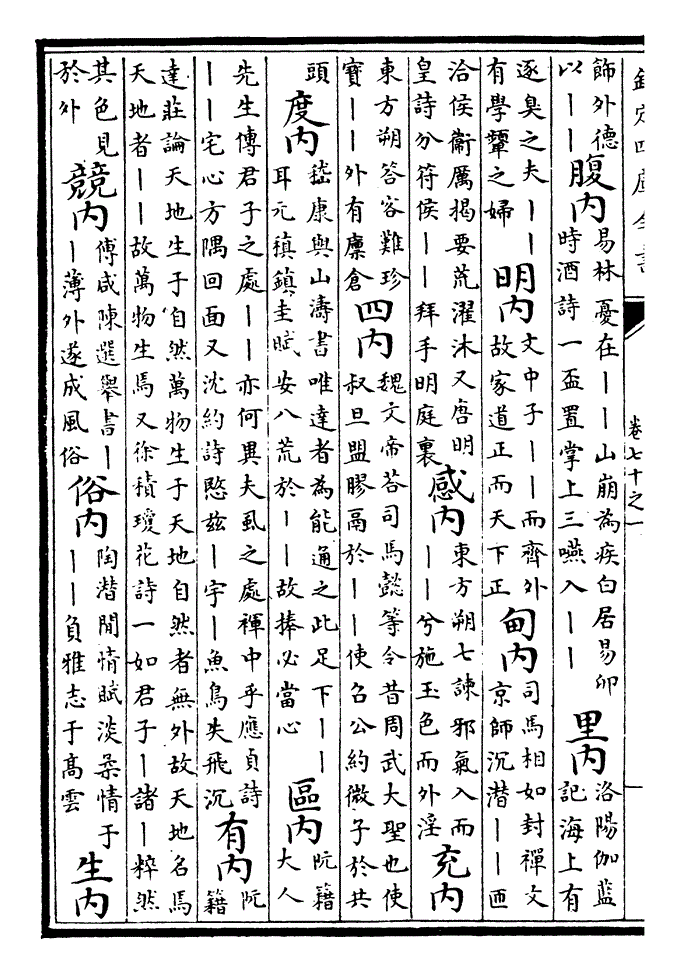 欽定四庫全書
卷七十之一
飾外德
以丨丨
腹内
易林憂在丨丨山崩為疾白居易卯
時酒詩一盃置掌上三嚥入丨丨
里内
洛陽伽藍
記海上有
逐臭之夫丨丨
有學顰之婦
明内
文中子丨丨而齊外
故家道正而天下正
甸内
司馬相如封禪文
京師沉潜丨丨匝
洽侯衛厲揭要荒濯沐又唐明
皇詩分符侯丨丨拜手明庭裏
感内
東方朔七諫邪氣入而
丨丨兮施玉色而外淫
充内
東方朔答客難珍
寶丨丨外有廩倉
四内
魏文帝荅司馬懿等令昔周武大聖也使
叔旦盟膠鬲於丨丨使召公約微子於共
頭
度内
嵇康與山濤書唯達者為能通之此足下丨丨
耳元稹鎮圭賦安八荒於丨丨故捧必當心
區内
阮籍
大人
先生傳君子之處丨丨亦何異夫虱之處褌中乎應貞詩
丨丨宅心方隅回面又沈約詩愍兹丨宇丨魚鳥失飛沉
有内
阮
籍
達莊論天地生于自然萬物生于天地自然者無外故天地名焉
天地者丨丨故萬物生焉又徐積瓊花詩一如君子丨諸丨粹然
其色見
於外
競内
傅咸陳選舉書丨
丨薄外遂成風俗
俗内
陶潜閒情賦淡柔情于
丨丨負雅志于高雲
生内